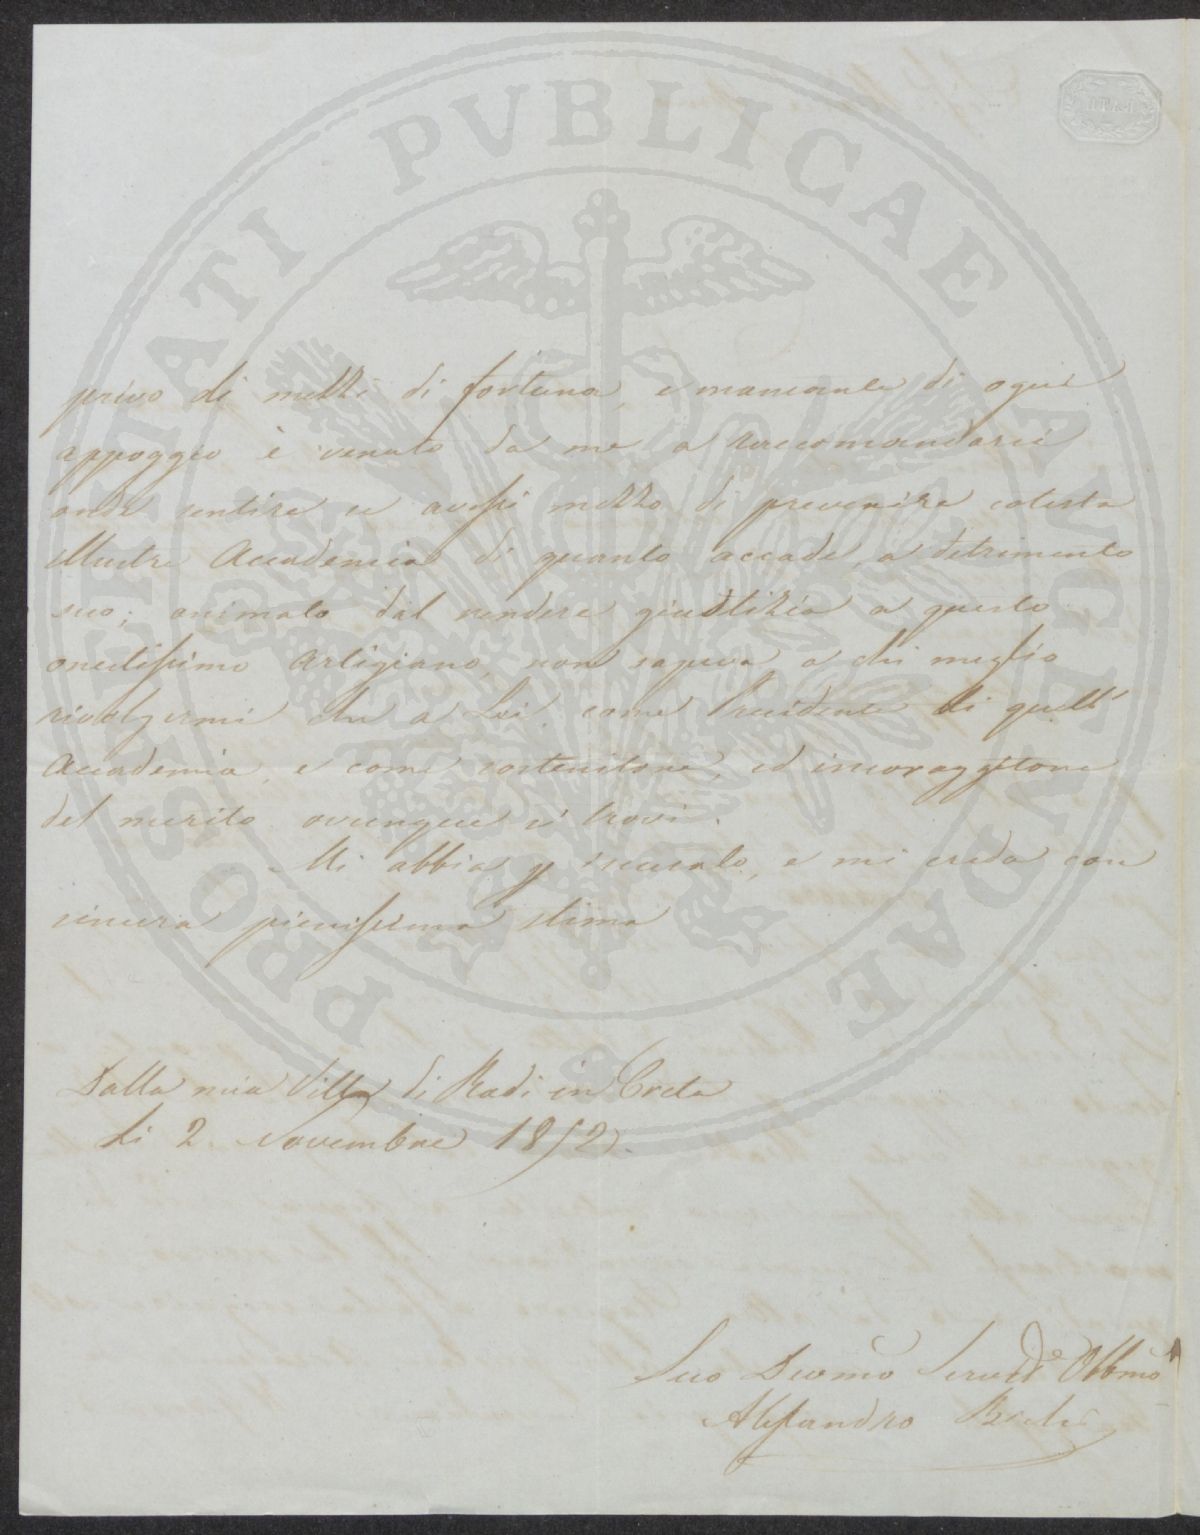 PROSPERITATI PVBLICAE AVGENDAE
BATH
privo di mezzi di fortuna, e mancante di ogni
appoggio è venuto da me a raccomandarsi
onde sentire se avessi mezzo di prevenire cotesta
illustre Accademia di quanto accade, a detrimento
suo; animato dal rendere giustizia a questo
onestissimo Artigiano, non sapeva a chi meglio
rivolgermi che a Lei come Presidente di quell'
Accademia, e come sostenitore, ed incoraggitore
del merito ovunque si trovi.
Mi abbia p iscusato, e mi creda con
sincera pienissima stima
Dalla mia Villa di Radi in Creta
li 2 Novembre 1852.
Suo Devmo Servit.e Obbmo
Alessandro